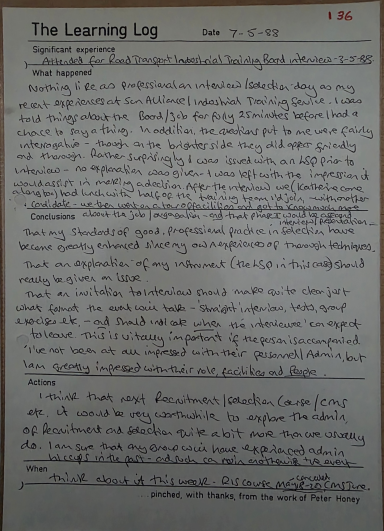 136
The Learning Log Date 7-5-88
Significant experience
Attended for Road Transport Industrial Training Board interview - 3-5-88.
What happened
Nothing like as professional an interview/selection day as my
recent experiences at Sun Alliance/Industrial Training Service. I was
told things about the Board/job for fully 25 minutes before I had a
chance to say a thing. In addition, the questions put to me were fairly
interrogative - though on the brighter side they did appear friendly
and thorough. Rather surprisingly I was issued with an LSQ prior to
interview - no explanation was given & I was left with the impression it
would assist in making selection. After the interview we (Katherine came
along too) had lunch with half of the training team I'd join - with another
candidate - we then went on a tour of facilities and got to know more
Conclusions about the job/organisation - and that phase I would be assessed
That my standards of good, professional practice in selection have
become greatly enhanced since my own experiences of thorough techniques.
That an explanation of my instrument (the LSQ in this case) should
really be given on issue.
That an invitation to interview should make quite clear just
what format the event will take - straight interview, tests, group
exercises etc. - and should indicate when the interviewee can expect
to leave. This is vitally important if the person is accompanied.
I've not been at all impressed with their personnel/Admin, but
I am greatly impressed with their role, facilities and people.
Actions
I think that next Recruitment/Selection Course/CMS
etc. it would be very worthwhile to explore the admin,
of Recruitment and Selection quite a bit more than we usually
do. I am sure that any group will have experienced admin
hiccups in the past - and such can ruin another wise the event
When
think about it this week - RIS course cancelled
...pinched, with thanks, from the work of Peter Honey